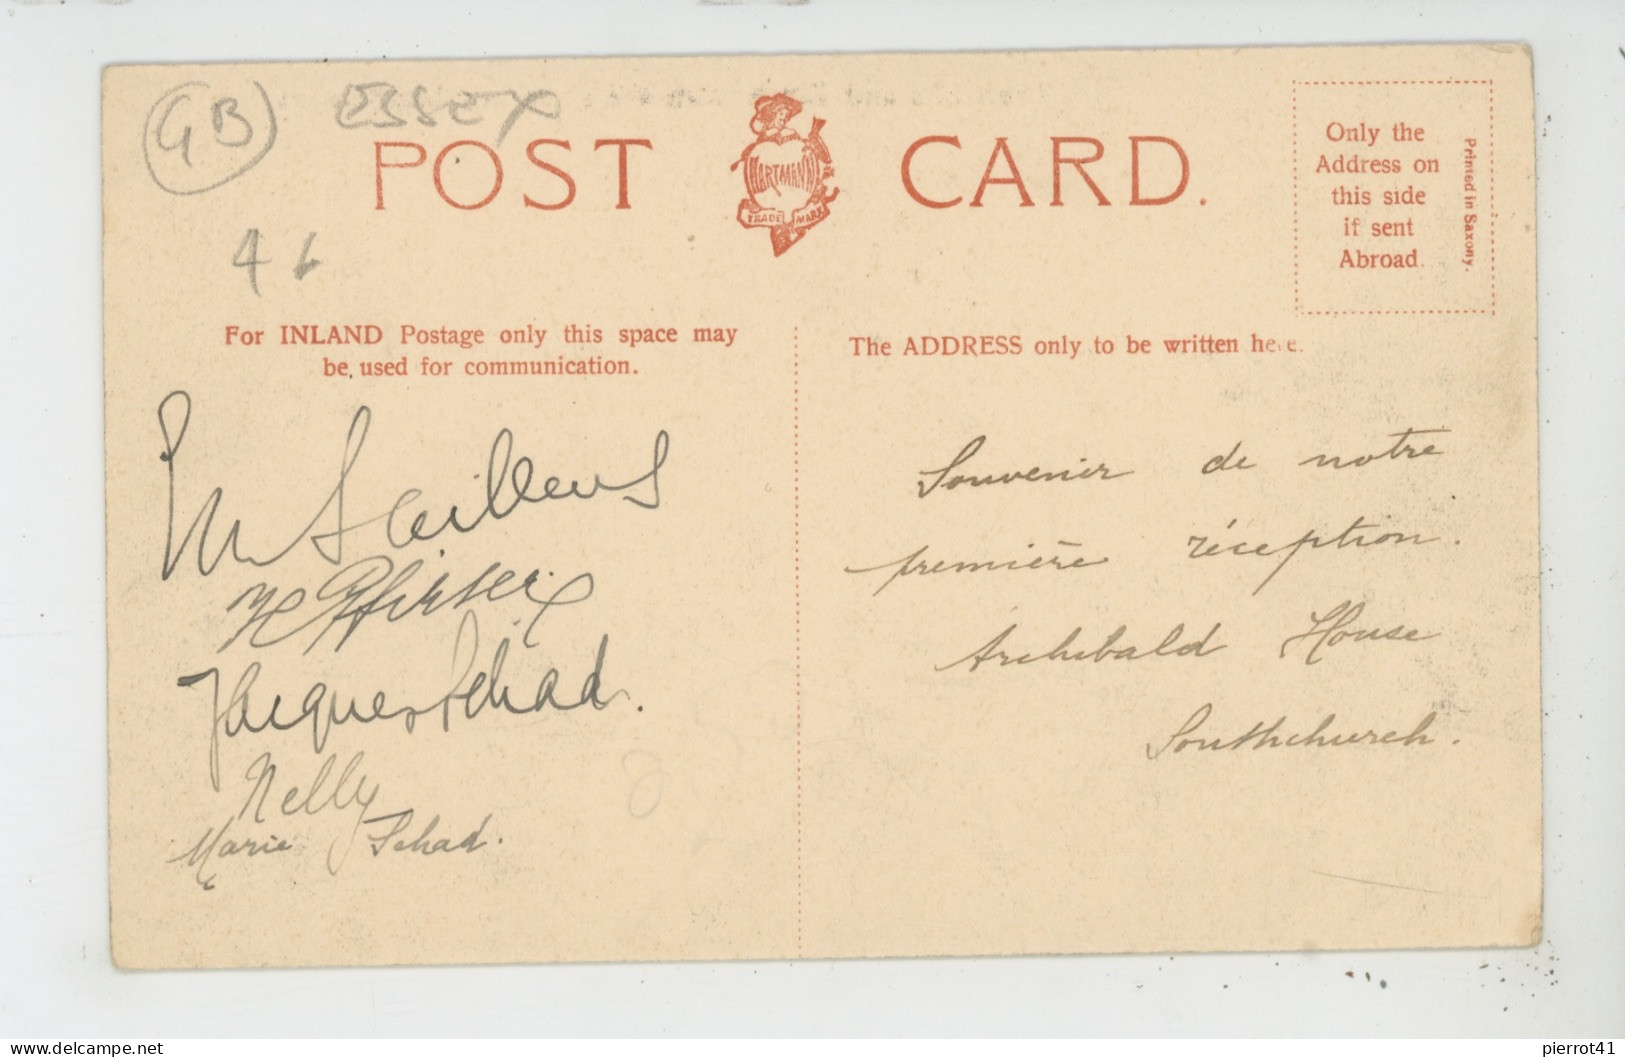 GB ESSEX
POST CARD.
HARTMANN
TRADE MARK
Only the
Address on
this side
if sent
Abroad.
Printed in Saxony.
4
For INLAND Postage only this space may
be used for communication.
The ADDRESS only to be written here.
Saillens
Jacques Schad.
Nelly
Marie Schad.
Souvenir de notre
première réception.
Archibald House
Southchurch.
delcampe.net
pierrot41